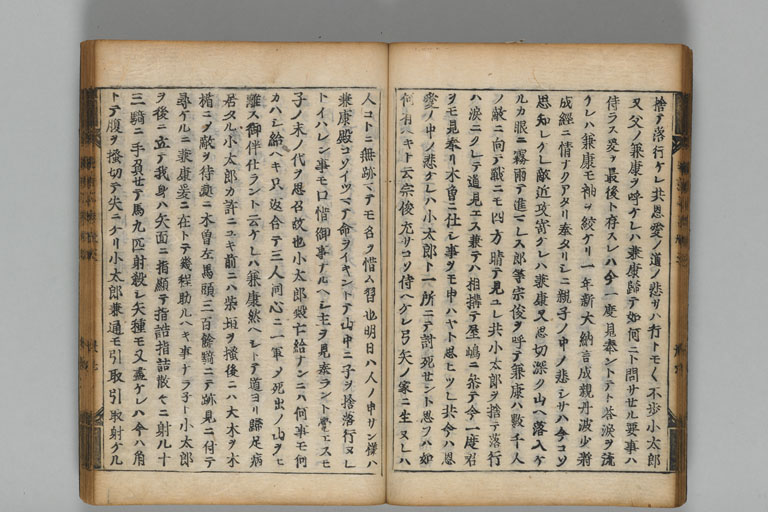 捨テ落行ケレ共恩愛ノ道ノ悲サハ行トモ〱不歩小太郎
又父ノ兼康ヲ呼ケレハ兼康歸テ如何ニト問サセル要事ハ
侍ラス爰ヲ最後ト存スレハ今一度見奉ントテト答涙ヲ流
ケレハ兼康モ袖ヲ絞ケリ一年新大納言成親丹波少將
成經ニ情ナクアタリ奉タリシニ親子ノ中ノ悲シサハ今コソ
思知レケレ敵近攻寄ケレハ兼康又思切深ク山ヘ落入ケ
ルカ眼ニ霧雨テ進マレス郎等宗俊ヲ呼テ兼康ハ數千人
ノ敵ニ向テ戰ニモ四方晴テ見ユレ共小太郎ヲ捨テ落行
ハ涙ニクレテ道見エス兼テハ相構テ屋嶋ニ參テ今一度君
ヲモ見奉リ木曽ニ仕シ事ヲモ申ハヤト思ヒツレ共今ハ恩
愛ノ中ノ悲ケレハ小太郎ト一所ニテ討死セント思フハ如
何有ヘキト云宗俊尤サコソ侍ヘケレ弓矢ノ家ニ生ヌレハ
人コトニ無跡マテモ名ヲ惜ム習也明日ハ人ノ申サン樣ハ
兼康殿コソイツマテ命ヲイキントテ山中ニ子ヲ捨落行ヌレ
トイハレン事モ口惜御事ナルヘシ主ヲ見奉ラント覺エスモ
子ノ末ノ代ヲ思召故也小太郎殿亡給ナンニハ何事モ何
カハシ給ヘキ只返合テ三人同心ニ一軍メ死出ノ山ヲモ
離ス御伴仕ラント云ケレハ兼康然ヘシトテ道ヨリ歸足病
居タル小太郎カ許ニユキ前ニハ柴垣ヲ掻後ニハ大木ヲ木
楯ニメ敵ヲ待處ニ木曽左馬頭三百餘騎ニテ跡見ニ付テ
尋ケルニ兼康爰ニ在トテ幾程助ルヘキ事ナラ子ト小太郎
ヲ後ニ立テ我身ハ矢面ニ指顯テ指詰指詰散々ニ射ル十
三騎ニ手負せテ馬九匹射殺シ矢種モ又盡ケレハ今ハ角
トテ腹ヲ掻切テ失ニケリ小太郎兼通モ引取引取射ケル